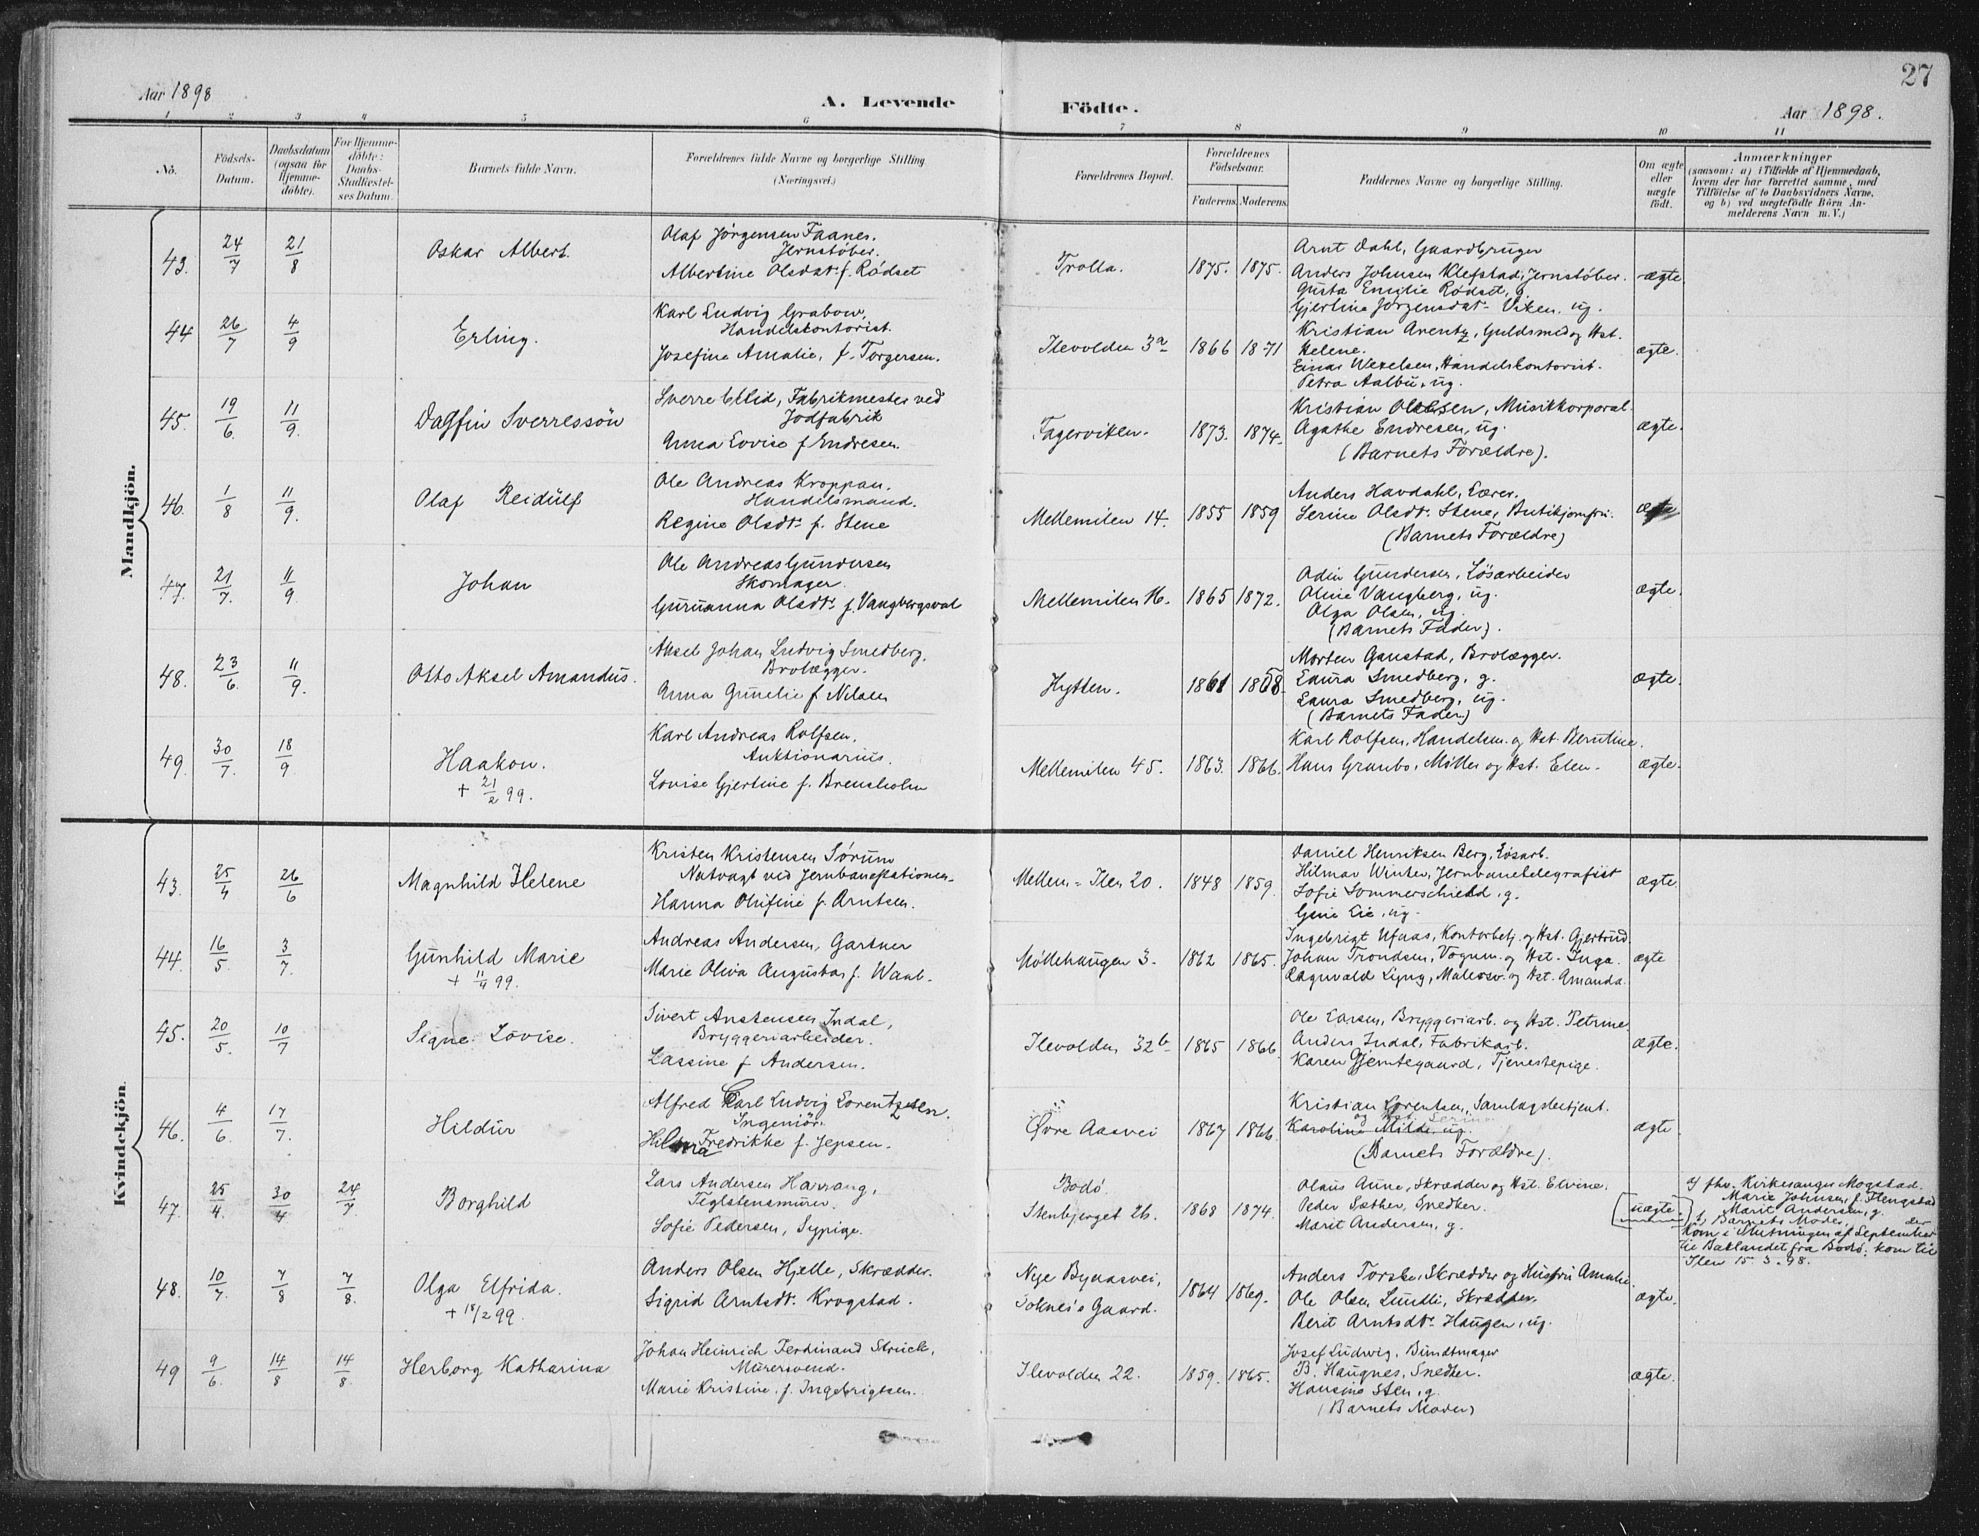 27
Aar 1898
A. Levende
Födte.
Aar 1898.
1 2 3 4 5 6 7 8 9 10 11
No.
Födsels-Datum.
Daabsdatum (ogsaa for Hjemme-döbte).
For Hjemme-döbte: Daabs-Stadfæstel-ses Datum.
Barnets fulde Navn.
Forældrenes fulde Navne og borgerlige Stilling
(Næringsvei.)
Forældrenes Bopæl.
Forældrenes Födselsaar.
Faderens. Moderens.
Faddernes Navne og borgerlige Stilling.
Om ægte eller uægte födt.
Anmærkninger
(saasom: a) i Tilfælde af Hjemmedaab,
hvem der har forrettet samme, med
Tilföielse af to Daabsvidners Navne,
og b) ved uægtefödte Börn An-
melderens Navn m. V.)
Mandkjön.
43. 24/7 21/8 Oskar Albert.
Olaf Jörgensen Faanes.
Jernstøber.
Albertine Olsdatr f. Rödset
Trolla. 1875. 1875.
Arnt Dahl, Gaardbruger
Anders Johnsen Klefstad, Jernstøber.
Gusta Emilie Rödset, g
Gjertine Jørgensdatr Viken, ug.
ægte
44 26/7 4/9 Erling.
Karl Ludvig Grabow,
Handelskontorist.
Josefine Amalie, f. Torgersen.
Ilevolden 3a 1866 1871
Kristian Arentz, Guldsmed og Hst.
Helene.
Einar Wexelsen, Handelskontorist.
Petra Aalbu, ug.
ægte.
45. 19/6. 11/9. Dagfin Sverressön
Sverre Ellid, Fabrikmester ved
Jodfabrik
Anna Lovise f Endresen.
Fagerviken. 1873. 1874.
Kristian Olsen, Musikkorporal.
Agathe Endresen, ug.
(Barnets Forældre).
ægte.
46. 1/8 11/9. Olaf Reidulf
Ole Andreas Kroppan.
Handelsmand.
Regine Olsdtr f. Stene
Mellemilen 14. 1855 1859
Anders Havdahl, Lærer.
Serine Olsdtr Stene, Butikjomfru.
(Barnets Forældre)
ægte
47. 21/7. 11/9. Johan
Ole Andreas Gundersen
Skomager.
Guruanna Olsdtr f. Vangbergsval
Mellemilen 16. 1865 1872.
Odin Gundersen, Løsarbeider
Oline Vangberg, ug.
Olga Olsen, ug.
(Barnets Fader).
ægte.
48. 23/6. 11/9. Otto Aksel Amandus.
Aksel Johan Ludvig Smedberg,
Brolægger.
Anna Gunelie f Nilsen
Hytten. 1861 1868.
Morten Ganstad, Brolægger.
Laura Smedberg, g.
Laura Smedberg, ug.
(Barnets Fader)
ægte.
49. 30/7. 18/9 Haakon.
+ 21/2 99.
Karl Andreas Rolfsen.
Auktionarius.
Lovise Gjertine f. Brensholm
Mellemilen 45. 1863. 1866.
Karl Rolfsen, Handelsm. og Hst. Berntine.
Hans Granbo, Møller og Hst. Elen.
ægte.
Kvindekjön.
43. 25/4 26/6 Magnhild Helene
Kristen Kristensen Sörum
Natvagt ved Jernbanestationen
Hanna Olufine f. Arntsen.
Mellem-Ilen 20. 1848 1859.
Daniel Henriksen Berg, Løsarb.
Hilmar Winter, Jernbanetelegrafist
Sofie Sommerschield, g.
Gine Lie, ug.
ægte.
44. 16/5. 3/7. Gunhild Marie
+ 11/4 99.
Andreas Andersen, Gartner
Marie Oliva Augusta f. Waal.
Møllehaugen 3. 1862 1865.
Ingebrigt Ufaas, Kontorbetj. og Hst. Gjertrud.
Johan Trondsen, Vognm. og Hst. Inga.
Ragnvald Lyng, Malersv. og Hst. Amanda.
ægte
45. 20/5. 10/7 Signe Lovise.
Sivert Anstensen Indal,
Bryggeriarbeider.
Lassine f Andersen.
Ilevolden 32b 1865 1866.
Ole Larsen, Bryggeriarb. og Hst. Petrine
Anders Indal, Fabrikarb.
Karen Gjemtegaard, Tjenestepige.
ægte.
46. 4/6. 17/7. Hildur
Alfred Carl Ludvig Lorentzen.
Ingeniör.
Hilma Fredrikke f. Jepsen.
Øvre Aasvei 1867 1866.
Kristian Lorentsen, Samlagsbetjent.
og Hst.
Karoline Milde, ug.
(Barnets Forældre).
ægte.
47. 25/4. 30/4 24/7 Borghild
Lars Andersen Harrang,
Teglstensmurer.
Sofie Pedersen, Sypige.
Bodö.
Stenbjerget 26. 1868 1874.
Olaus Aune, Skrædder og Hst. Elvine.
Peder Sæther, Snedker.
Marit Andersen, g.
[uægte.]
a) fhv. Kirkesanger Mogstad.
Marie Johnsen, f. Flengstad
Marit Andersen, g.
b, Barnets Moder, der
kom i Slutningen af September
til Baklandet fra Bodö; kom til
Ilen 15-3-98.
48. 10/7. 7/8 7/8. Olga Elfrida.
+ 18/2 99.
Anders Olsen Hjelle, Skrædder.
Sigrid Arntsdtr Krogstad.
Nye Byaasvei,
Toknes's Gaard. 1864 1869.
Anders Torske, Skrædder og Hustru Amalie
Ole Olsen Lundli, Skrædder.
Berit Arntsdtr Haugen, ug.
ægte.
49 9/6. 14/8 14/8. Herborg Katharina
Johan Heinrich Ferdinand Struck,
Murersvend.
Marie Kristine f. Ingebrigtsen.
Ilevolden 22. 1859. 1865.
Josef Ludwig, Bundtmager
B. Haugnes, Snedker.
Hansine Sten, g.
(Barnets Moder)
ægte.